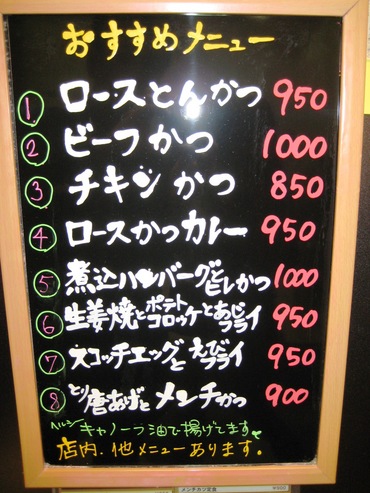 おすすめメニュー
① ロースとんかつ 950
② ビーフかつ 1000
③ チキンかつ 850
④ ロースかつカレー 950
⑤ 煮込ハンバーグとヒレかつ 1000
⑥ 生姜焼とポテトコロッケとあじフライ 950
⑦ スコッチエッグとえびフライ 950
⑧ とり唐あげとメンチかつ 900
ヘルシーキャノーラ油で揚げてます
店内、他メニューあります。
メンチカツ定食